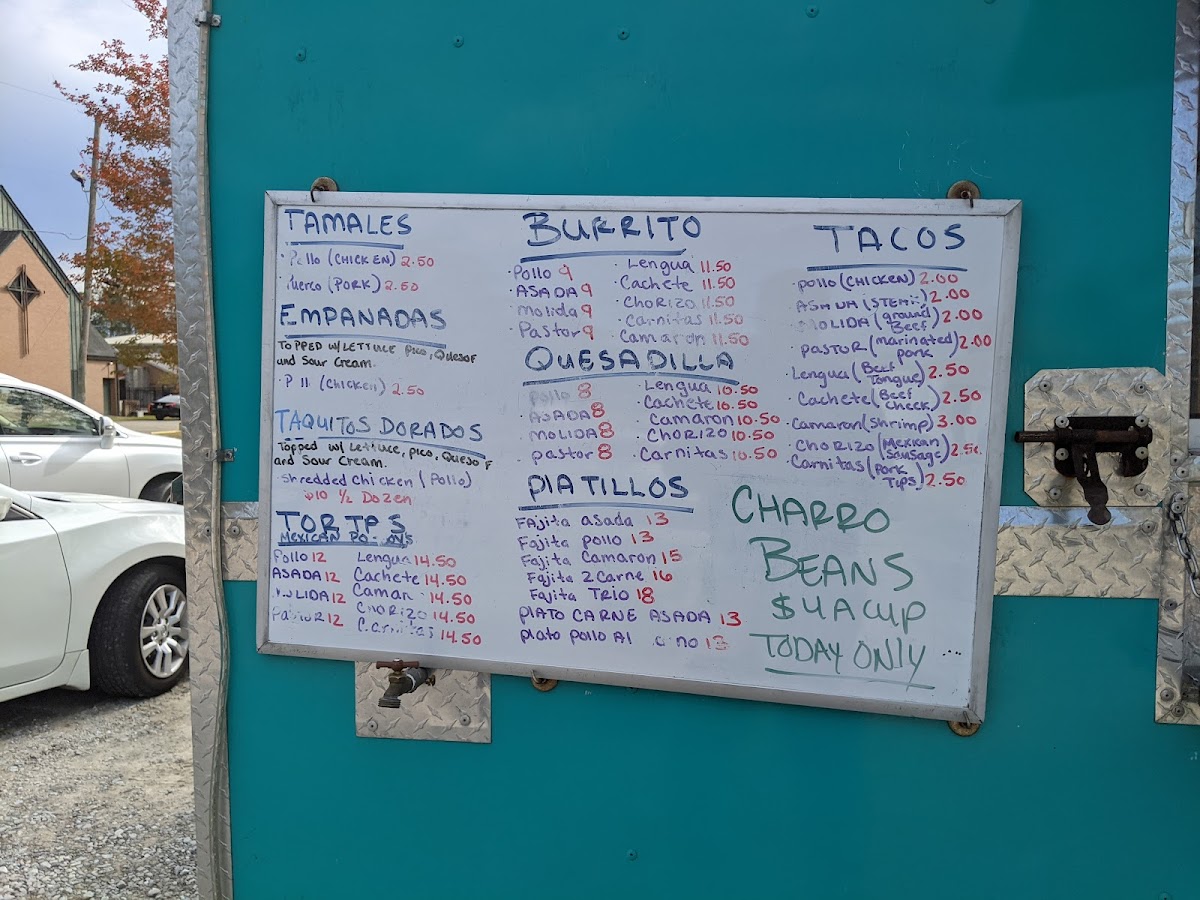 TAMALES
(CHICKEN) 2.50
(PORK) 2.50
EMPANADAS
TOPPED W/LETTUCE PICO, QUESO F
and Sour Cream.
(Chicken) 2.50
TAQUITOS DORADOS
Topped w/ Lettuce, pico, Queso F
and Sour Cream.
Shredded Chicken (Pollo)
$10 1/2 Dozen
MEXICAN
Pollo 12
ASADA 12
12
12
Lengua 14.50
Cachete 14.50
14.50
Chorizo 14.50
14.50
BURRITO
·Pollo 9
·ASADA 9
·Molida 9
·Pastor 9
·Lengua 11.50
·Cachete 11.50
·Chorizo 11.50
·Carnitas 11.50
·Camaron 11.50
QUESADILLA
·Pollo 8
·ASADA 8
·MOLIDA 8
·pastor 8
·Lengua 10.50
·Cachete 10.50
·Camaron 10.50
·CHORIZO 10.50
·Carnitas 10.50
PLATILLOS
FAjita asada 13
Fajita pollo 13
Fajita Camaron 15
Fajita 2 Carne 16
Fajita TRIO 18
PLATO CARNE ASADA 13
plato pollo Al 13
TACOS
·pollo (CHICKEN) 2.00
2.00
·MOLIDA (ground Beef) 2.00
·PASTOR (marinated pork) 2.00
·Lengua (Beef Tongue) 2.50
·Cachete (Beef cheek) 2.50
·Camaron (shrimp) 3.00
·CHORIZO (Mexican Sausage) 2.50
·Carnitas (Pork Tips) 2.50
CHARRO
BEANS
$4 A CUP
TODAY ONLY